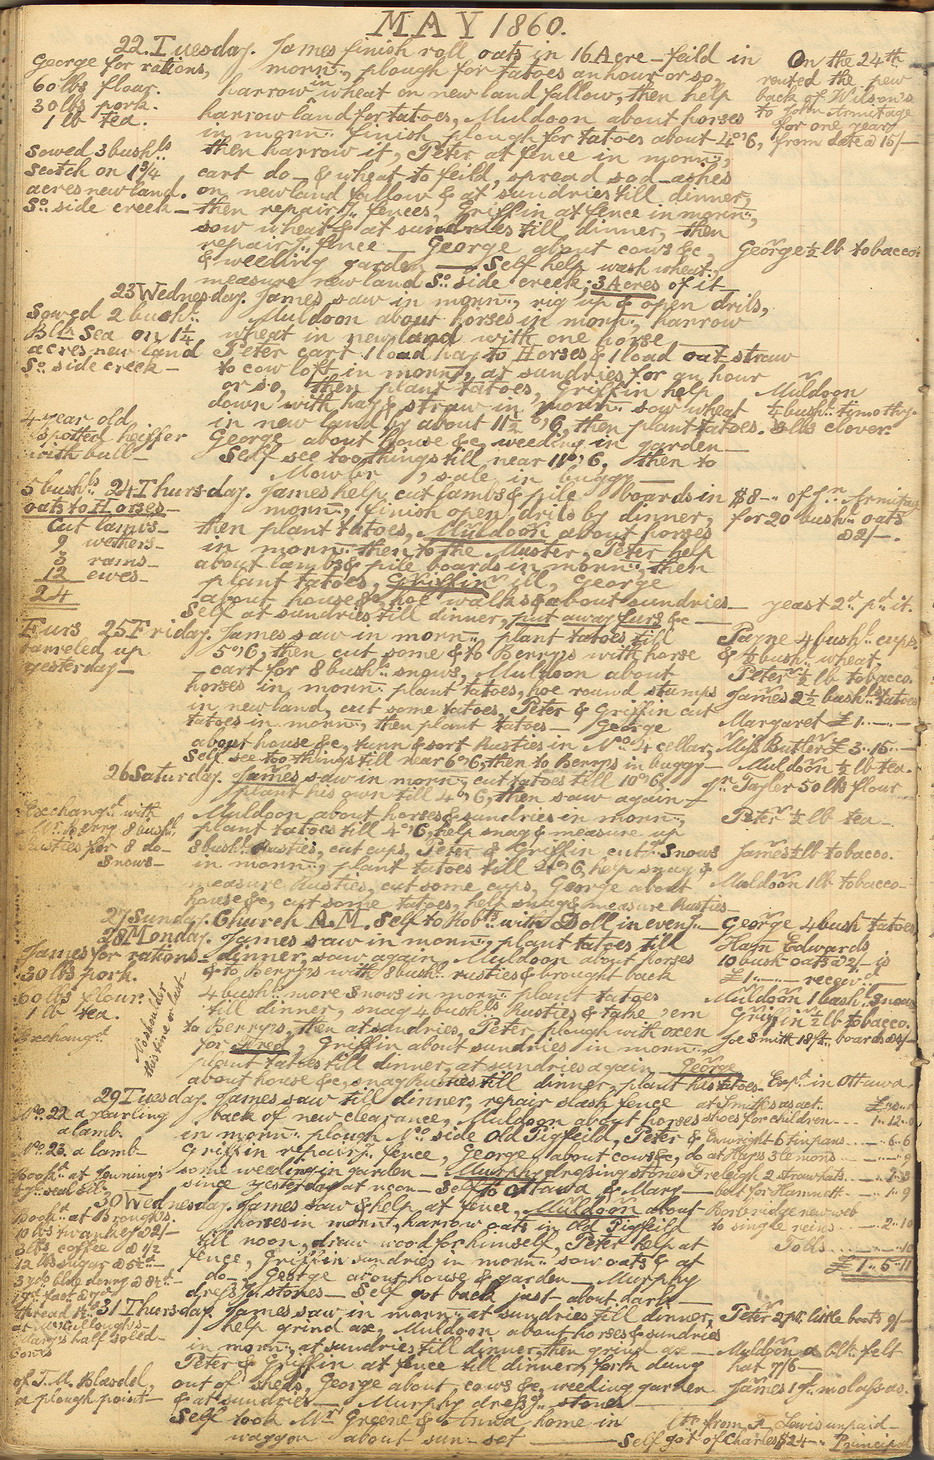 MAY 1860.
22. Tuesday. James finish roll oats in 16 Acre-feild in
George for rations,
60 lbs flour.
30 lbs pork.
1 lb tea.
morn:, plough for tatoes an hour or so,
harrow in wheat on new land fallow, then help
harrow land for tatoes, Muldoon about horses
in morn: finish plough for tatoes about 4 o'6,
then harrow it, Peter at fence in morn:,
On the 24th
rented the pew
back of Wilson's
to John Armitage
for one year
from date @ 15/-
Sowed 3 bushls
Scotch on 1 3/4
acres new land.
So. side creek -
cart do - & wheat to feild, spread sod-ashes
on new land fallow & at sundries till dinner,
then repairg. fences, Griffin at fence in morn:,
sow wheat & at sundries till dinner, then
repairg. fence - George about cows &c,
& weeding garden - Self help wash wheat.
measure new land So. side creek, 3 Acres of it
George 1/2 lb tobacco.
23 Wednesday. James saw in morn:, rig up & open drils,
Sowed 2 bushls.
Blk Sea on 1 1/4
acres new land
So. side creek -
Muldoon about horses in morn:, harrow
wheat in new land with one horse -
Peter cart 1 load hay to Horses & 1 load oat straw
to cow loft in morn:, at sundries for an hour
or so, then plant tatoes, Griffin help
down with hay & straw in morn: sow wheat
in new land by about 11 1/2 o'6, then plant tatoes.
George about house &c, weeding in garden -
Self see to things till near 11 o'6, then to
Mowbr , sale in buggy -
Muldoon
1/4 bush: timothy.
3 lbs clover.
4 year old
spotted heiffer
with bull -
5 bushls. 24 Thursday. James help cut lambs & pile boards in
oats to Horses -
Cut lambs -
9 wethers -
3 rams -
12 ewes -
24
morn:, finish open drils by dinner,
then plant tatoes, Muldoon about horses
in morn: then to the Muster, Peter help
about lambs & pile boards in morn:, then
plant tatoes, Griffin ill, George
about house &c, hoe walks & about sundries -
Self at sundries till dinner, put away furs &c -
$8 - of Jn. Armitage
for 20 bush: oats
@ 2/-.
yeast 2d. pd. it.
Furs 25 Friday. James saw in morn:, plant tatoes till
barreled up
yesterday -
5 o'6, then cut some & to Berry's with horse
cart for 8 bushls. snows, Muldoon about
horses in morn: plant tatoes, hoe round stumps
in new land, cut some tatoes, Peter & Griffin cut
tatoes in morn:, then plant tatoes - George
about house &c, turn & sort Rusties in No. 4 cellar,
Self see to things till near 6 o'6, then to Berry's in buggy -
Payne 4 bushls. cups
& 1/2 bush: wheat,
Peter 1/2 lb tobacco.
James 2 1/2 bushls. tatoes
Margaret £1.-.-
Miss Butler £3.15.-
Muldoon 1/2 lb tea.
26 Saturday. James saw in morn:, cut tatoes till 10 o'6,
plant his own till 4 o'6, then saw again -
Jn. Tayler 50 lbs flour
Exchangd. with
Berry 8 bushls.
Rusties for 8 do-
Snows -
Muldoon about horses & sundries in morn:,
plant tatoes till 4 o'6, help snag & measure up
8 bushls Rusties, cut cups, Peter & Griffin cut Snows
in morn:, plant tatoes till 4 o'6, help snag &
measure Rusties, cut some cups, George about
house &c, cut some tatoes, help snag & measure Rusties -
Peter 1/2 lb tea -
James 1 lb tobacco.
Muldoon 1 lb tobacco -
27 Sunday. Church A.M. Self to Robts. with Doll in even: -
George 4 bush tatoes
28 Monday. James saw in morn:, plant tatoes till
James for rations -
30 lbs pork.
60 lbs flour
1 lb tea.
Exchangd.
No shoulder
this time or last -
dinner, saw again, Muldoon about horses
& to Berry's with 8 bush: rusties & brought back
4 bushls. more Snows in morn: plant tatoes
till dinner, snag 4 bushls Rusties & take 'em
to Berry's, then at sundries, Peter plough with oxen
for Alfred, Griffin about sundries in morn:
plant tatoes till dinner, at sundries again, George
about house &c, snag Rusties till dinner, plant his tatoes -
Ham Edwards
10 bush oats @ 2/- is
£1 - - receivd.
Muldoon 1 bushl. Snows
Griffin 1/2 lb tobacco.
Joe Smith 18 ft. boards @ 4/-
Expd. in Ottawa
29 Tuesday. James saw till dinner, repair slash fence
No. 22 a yearling
a lamb.
No. 23. a lamb
back of new clearance, Muldoon about horses
in morn: plough No. side Old Pigfeild, Peter &
Griffin repairg. fence, George about cows &c, do
some weeding in garden - Murphy dressing stones
since yesterday at noon - Self to Ottawa & Mary -
at Smith's as act.
shoes for children - - - 1.12.6
Enwright 6 tin pans - - - 6.6
at Hays 3 lemons - - - 9
2 straw hats - - - 1.3
belt for Hammett - - 1.9
30 Wednesday. James saw & help at fence, Muldoon about
horses in morn:, harrow oats in Old Pigfeild
till noon, draw wood for himself, Peter help at
fence, Griffin sundries in morn: sow oats & at
do - George about house & garden - Murphy
dressg. stones - Self got back just about dark -
new web
to single reins - - - 2.10
Tolls - - - 10
£1.5.11
Bookd. at Brough's.
3 lbs coffee @ 1/2
12 lbs sugar @ 6d -
31 Thursday. James saw in morn: at sundries till dinner,
help grind ax, Muldoon about horses & sundries
in morn: at sundries till dinner, then grind ax -
Peter & Griffin at fence till dinner, fork dung
out of sheds, George about cows &c, weeding garden
& at sundries - Murphy dressg. stones -
Self took Mrs. Greene & Anna home in
waggon about sun-set -
Peter 2 pr. little boots 9/-
Muldoon a blk. felt
hat 7/6 -
James 1 g. molasses.
half soled -
of T. M. Blasdel
a plough point -
from F. Lewis unpaid -
Self got of Charles $24 - Principal